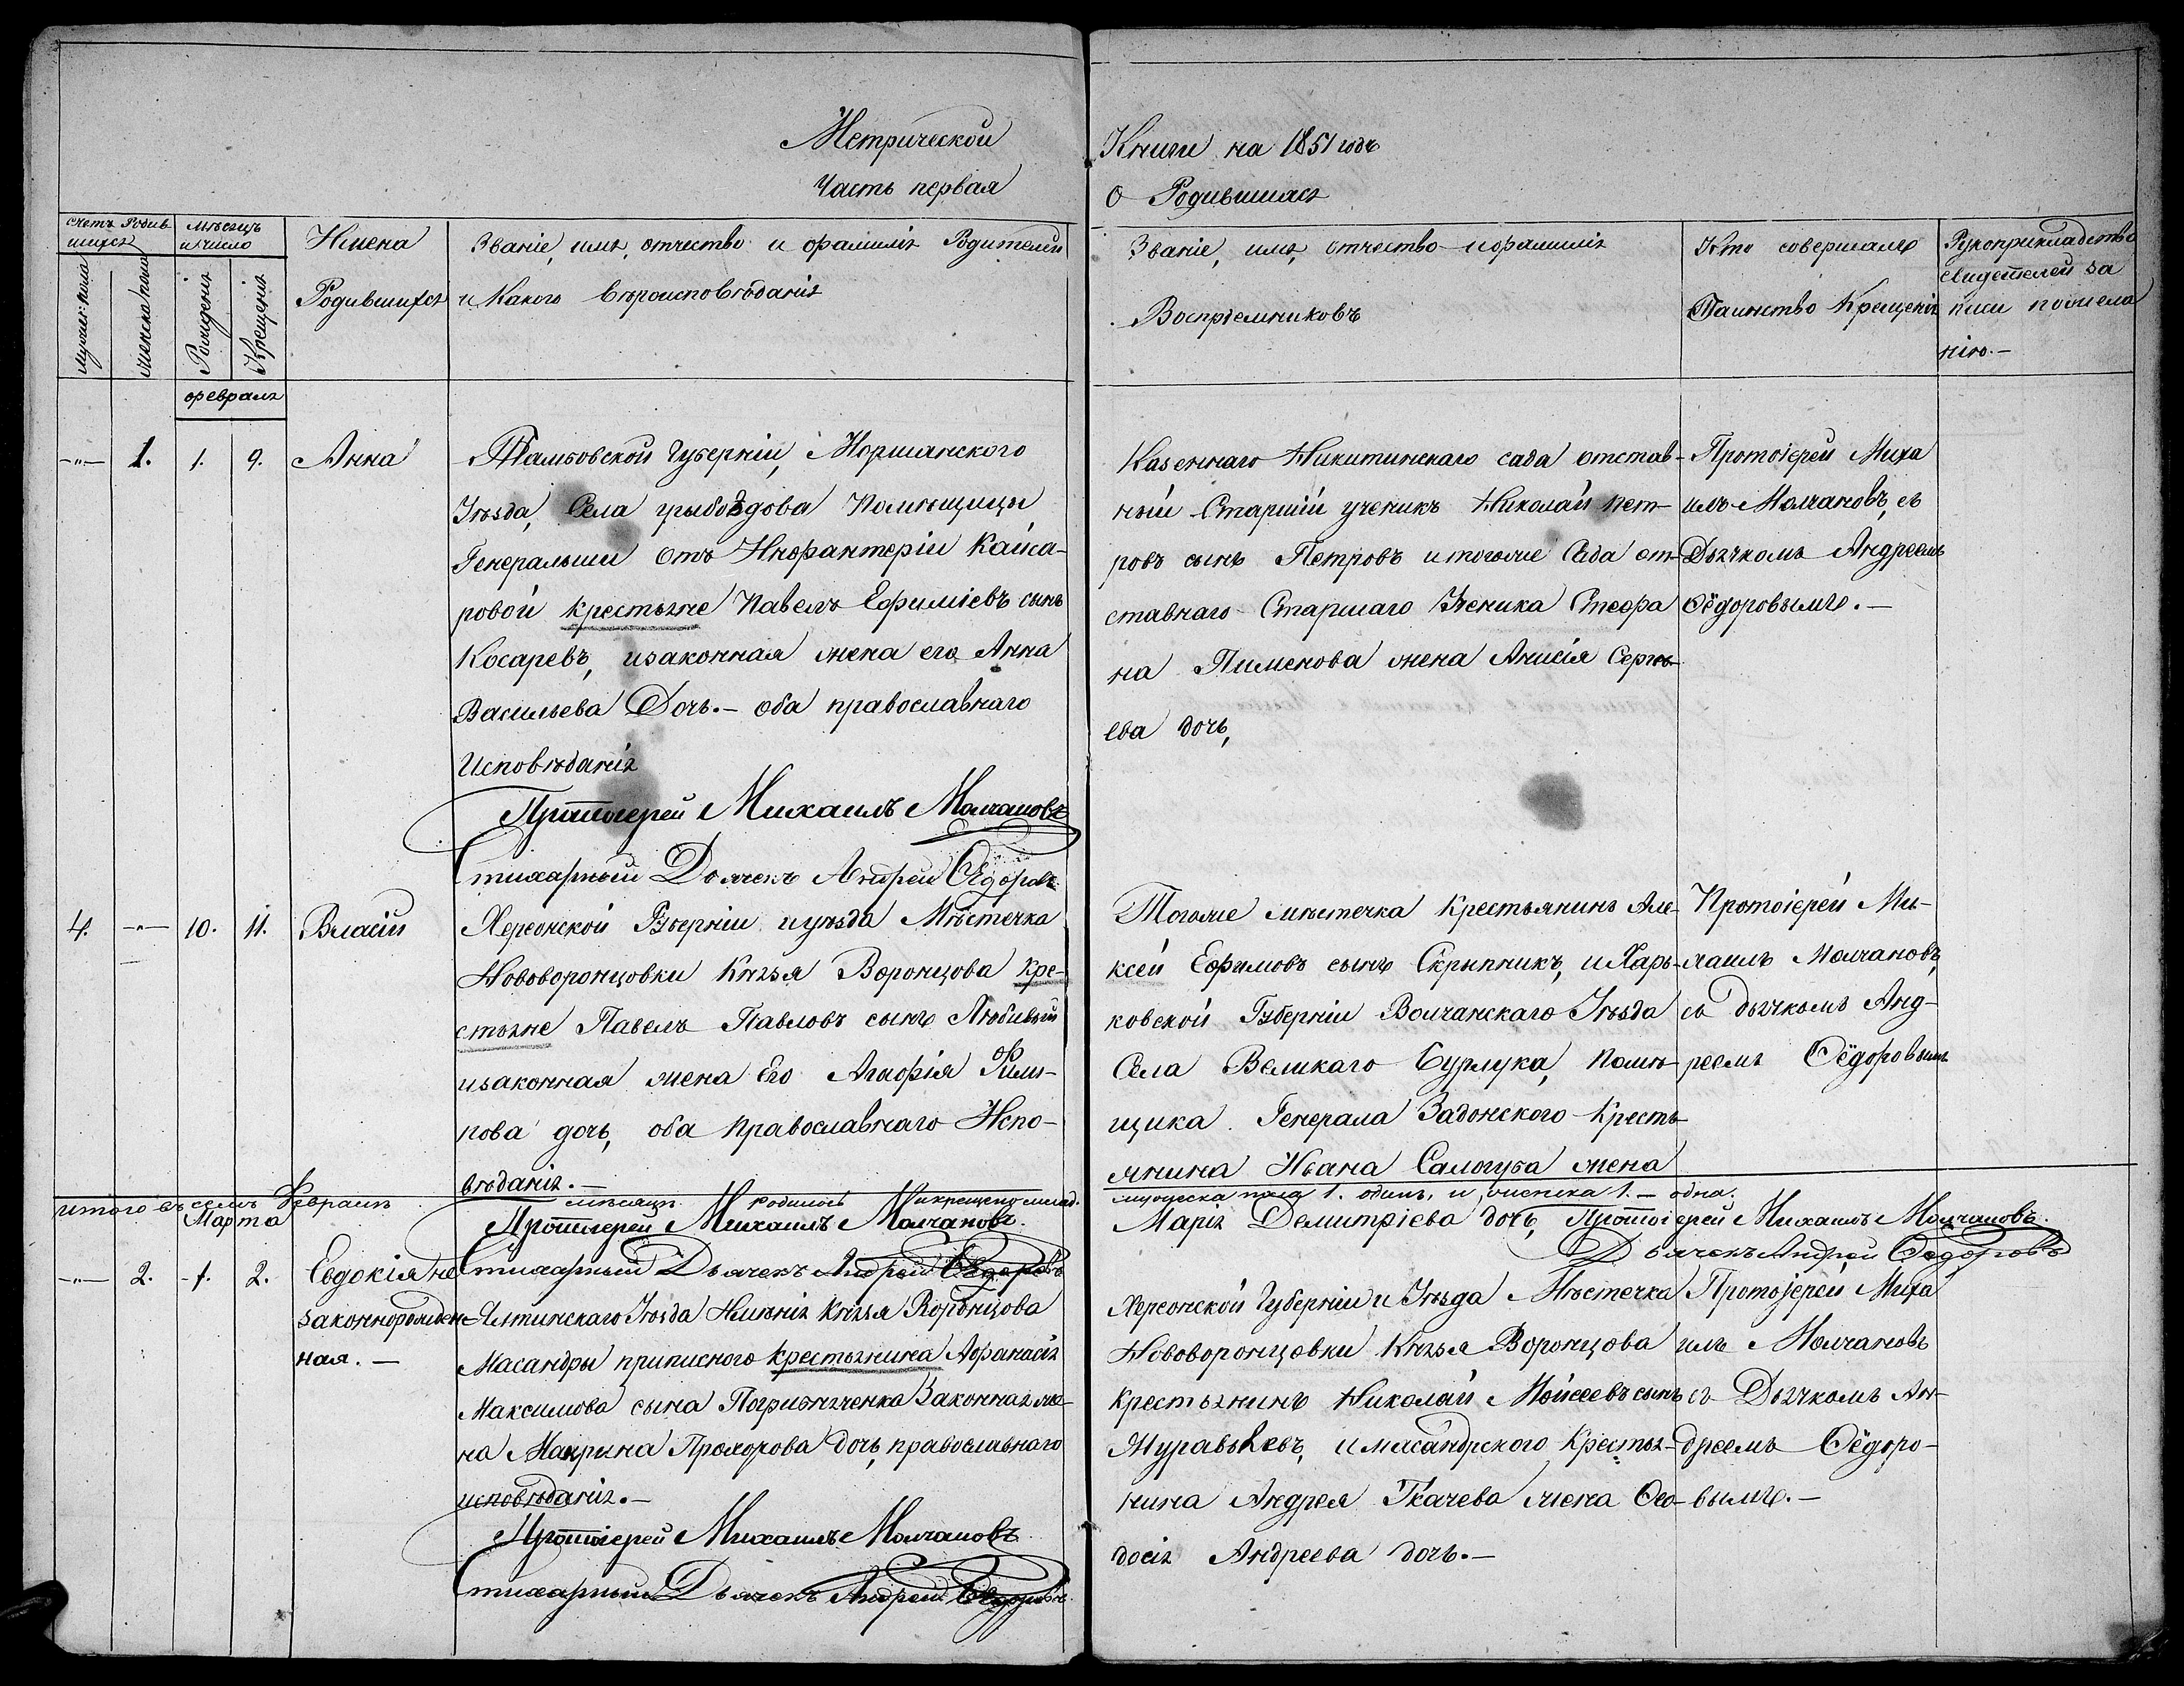 Метрической
Часть первая
Книги на 1851 годъ
О Родившихся
Счетъ Родив
шихся
мужес: пола
женска пола
Мѣсяцъ
и число
Рождения
Крещения
Имена
Родившихся
Званіе, имя, отчество и фамилія Родителей
и Какого вѣроисповѣданія
Званіе, имя, отчество и фамилія
Воспріемниковъ
Кто совершалъ
Таинство Крещенія
Рукоприкладство
свидетелей за
писи по жела
нію.—
февраля
—"— 1. 1. 9.
Анна
Тамбовской Губерніи, Моршанского
Уѣзда, Села грыбоѣдова Помѣщицы
Генеральши отъ Инфантеріи Кайса-
ровой крестьяне Павелъ Ефиміевъ сынъ
Косаревъ, и законная жена его Анна
Васильева Дочь.— оба православнаго
Исповѣданія
Протоіерей Михаилъ Молчановъ
Стихарный Дьячекъ Андрей Ѳёдоровъ
Казеннаго Никитинскаго сада отстав-
ный Старшій ученикъ Николай Пет-
ровъ сынъ Петровъ и тогоже Сада от-
ставнаго Старшаго Ученика Стефа
на Пименова жена Анисія Сергѣ-
ева дочь,
Протоіерей Миха
илъ Молчановъ, съ
Дьячкомъ Андреемъ
Ѳёдоровымъ.—
4. —"— 10. 11.
Власій
Херсонской Губерніи и уѣзда Мѣстечка
Нововоронцовки Князья Воронцова кре-
стьяне Павелъ Павловъ сынъ Любивый
и законная жена Его Агафія Фили-
пова дочь, оба Православнаго Испо-
вѣданія.—
Тогоже мѣстечка Крестьянинъ Але-
ксей Ефимовъ сынъ Скрыпникъ, и Харь-
ковской Губерніи Волчанскаго Уѣзда
Села Великаго Бурлука, помѣ-
щика Генерала Задонского Кресть-
янина Ивана Салогуба жена
Протоіерей Ми-
хаилъ Молчановъ,
съ дьячкомъ Анд-
реемъ Ѳёдоровымъ
итого въ семъ Феврали мѣсяцѣ родилось и крещено млад.
мужеска пола 1. одинъ, и женска 1.— одна.
Протоіерей Михаилъ Молчановъ.
Стихарный Дьячекъ Андрей Ѳёдоровъ
Марія Демитріева дочь, Протоіерей Михаилъ Молчановъ.
Дьячекъ Андрей Ѳедоровъ
Марта
—"— 2. 1. 2.
Евдокія не
законнорожден-
ная.—
Ялтинскаго Уѣзда Имѣнія Князья Воронцова
Масандры приписного крестьянина Афанасія
Максимова сына Погрибниченка Законная же-
на Макрына Прохорова дочь, православнаго
исповѣданія.—
Протоіерей Михаилъ Молчановъ
Стихарный Дьячекъ Андрей Ѳёдоровъ
Херсонской Губерніи и Уѣзда Мѣстечка
Нововоронцовки Князья Воронцова
крестьянинъ Николай Мойсеевъ сынъ
Муравьевъ, и масандрского Крестья-
нина Андрея Ткачева жена Ѳео-
досія Андреева дочь.—
Протоіерей Миха
илъ Молчановъ
съ Дьячкомъ Ан-
дреемъ Ѳёдоро-
вымъ.—